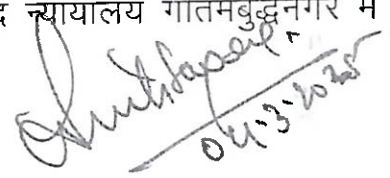 द न्यायालय गौतमबुद्धनगर में
04-3-2025